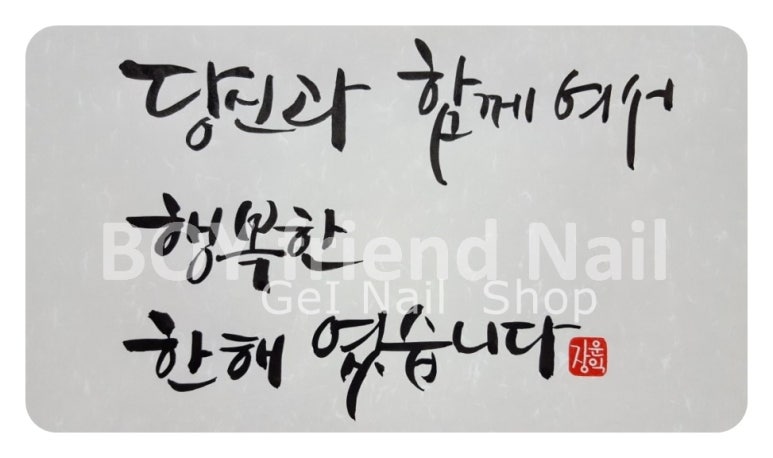 당신과 함께 여서
행복한
BOYfriend Nail
GeI Nail Shop
한해 였습니다
강운익